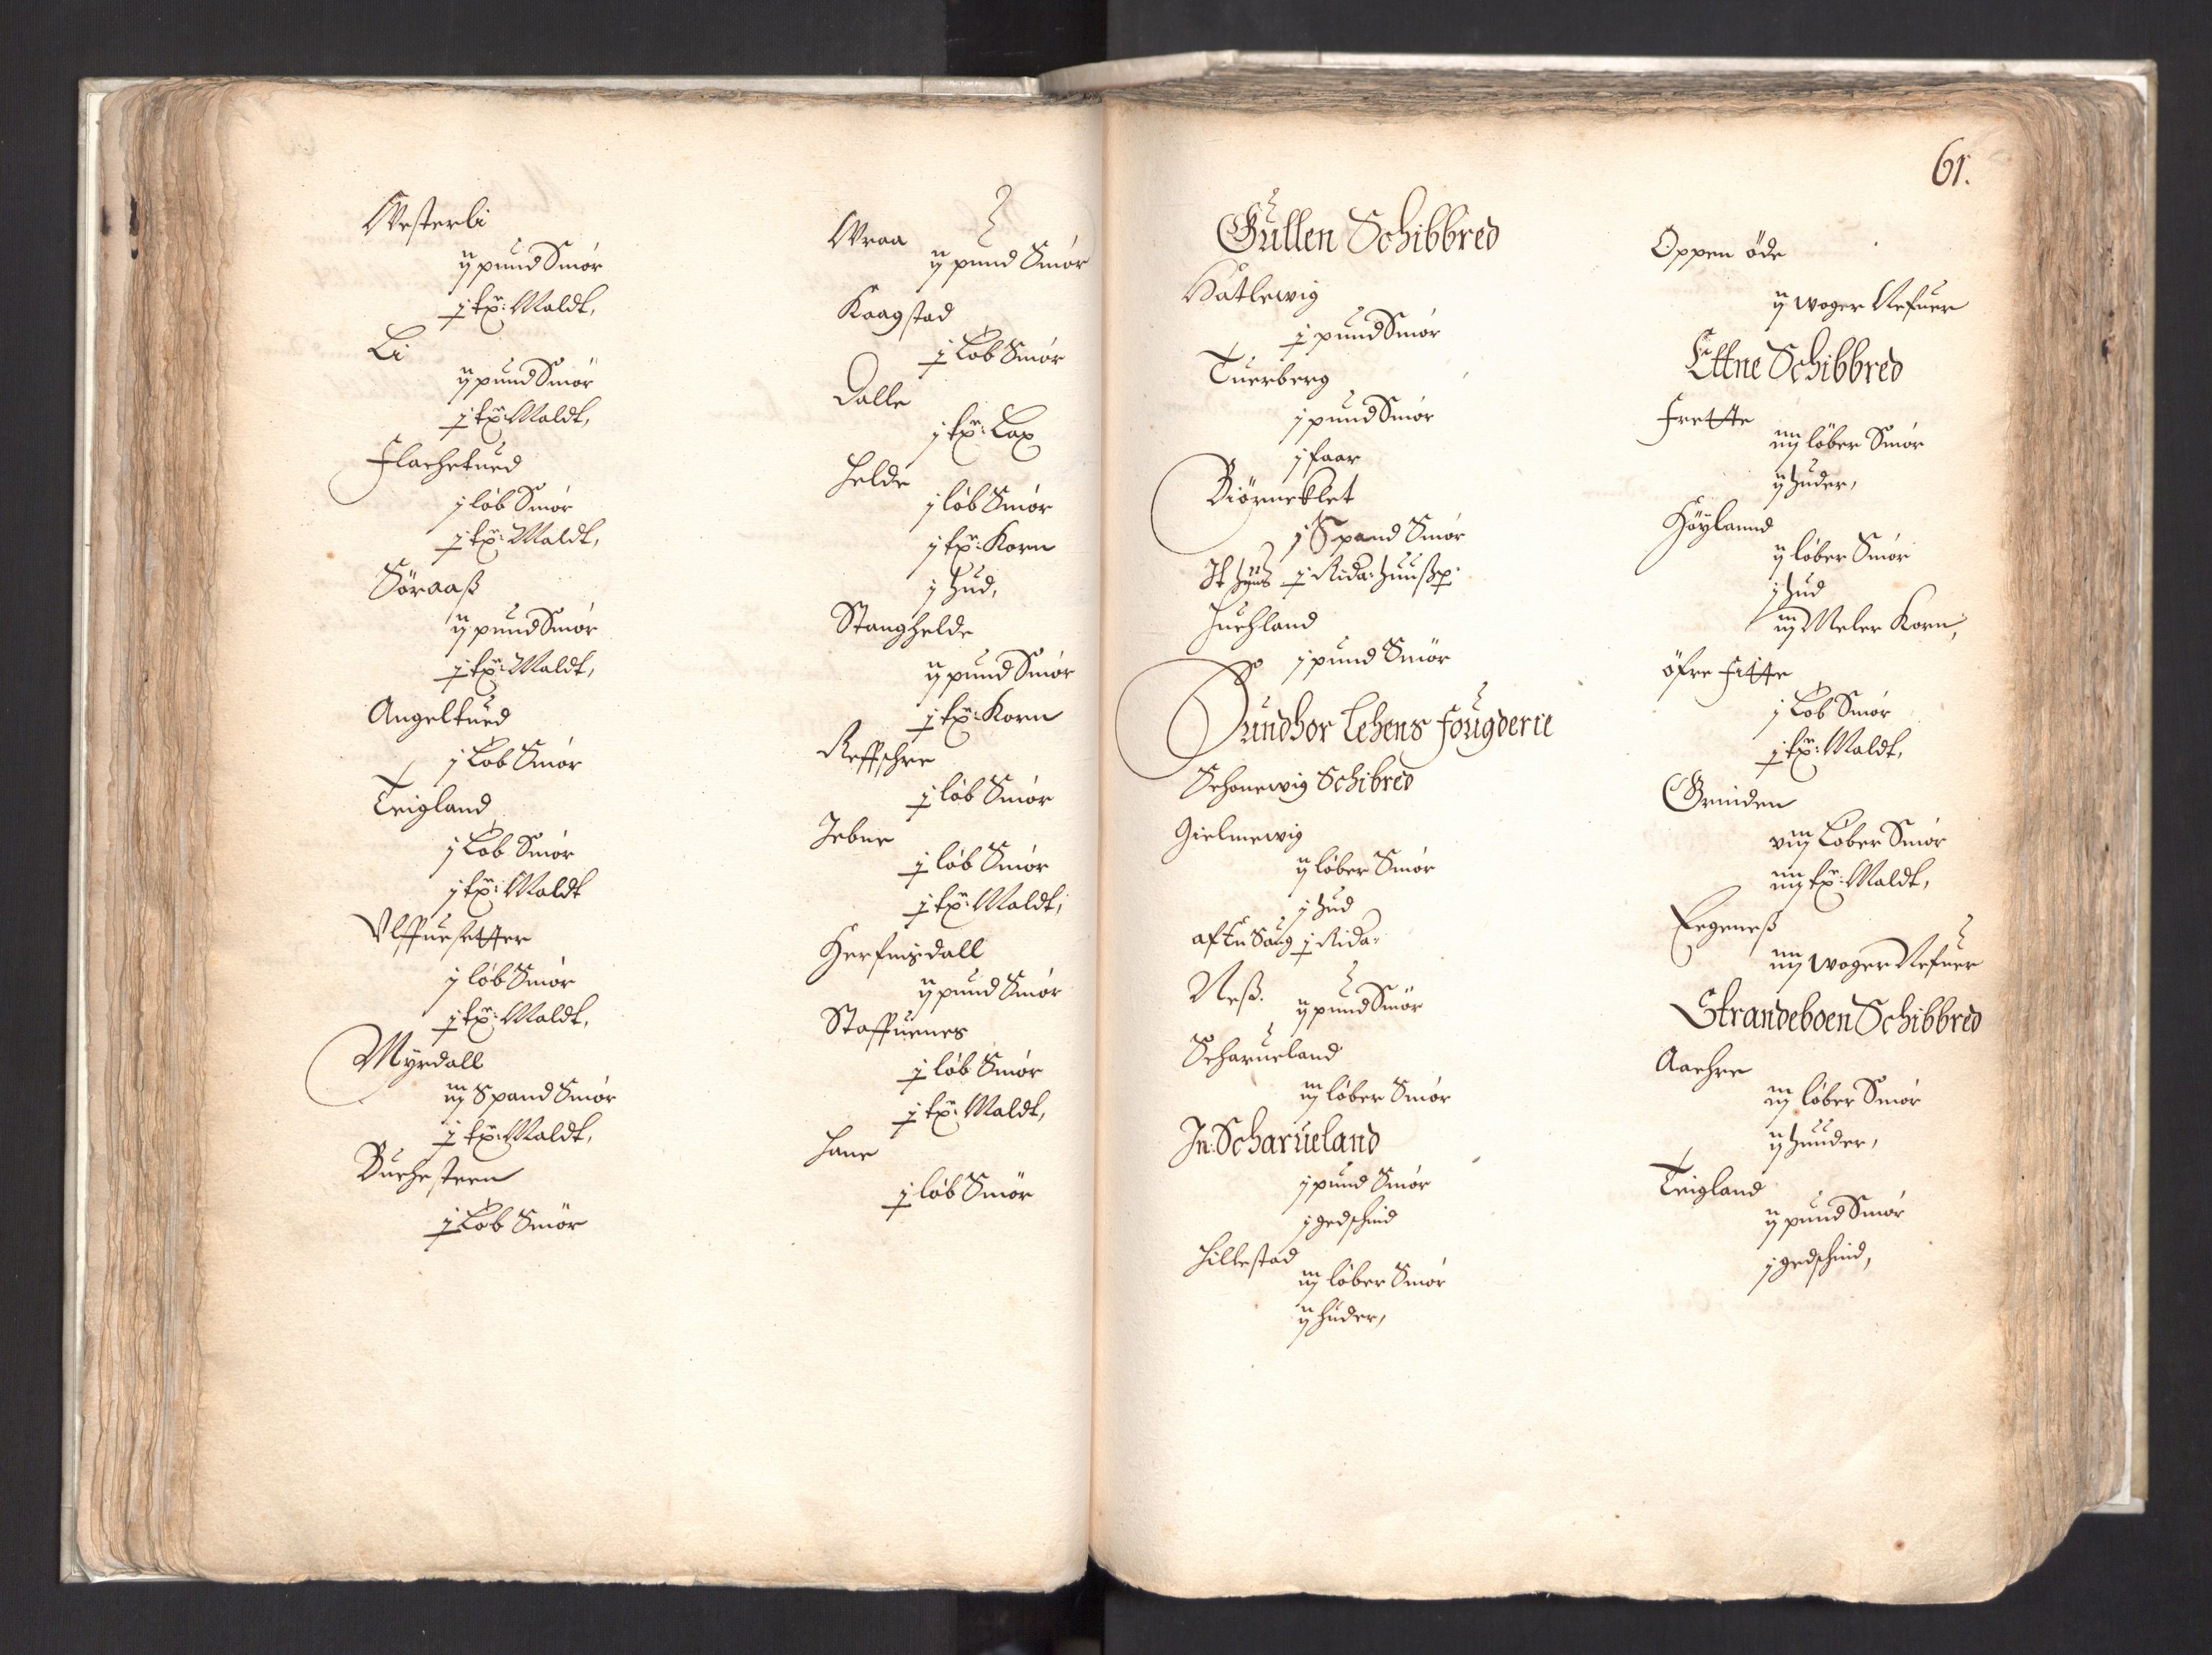 Westerli
ij pund Smör
j tp: Maldt,
Li
ij pund Smör
j tp: Maldt,
Flachetued
j löb Smör
j tp: Maldt,
Söraaß
ij pund Smör
j tp: Maldt,
Angeltued
j Löb Smör
Teigland
j Löb Smör
j tp: Maldt
Vlffuesetter
j löb Smör
j tp: Maldt,
Myrdall
iij Spand Smör
j tp: Maldt,
Buchesteen
j Löb Smör
Wraa
ij pund Smör
Kaagstad
j Löb Smör
Dalle
j tp: Lax
Helde
j löb Smör
j tp: Korn
j Hud,
Stanghelde
ij pund Smör
j tp: Korn
Reffschre
j löb Smör
Jebne
j löb Smör
j tp: Maldt,
Herfinsdall
ij pund Smör
Staffuenes
j löb Smör
j tp: Maldt,
Hane
j löb Smör
61.
Gullen Schibbred
Hatlewig
j pund Smör
Tuerberg
j pund Smör
j faar
Biörneklet
j Spand Smör
j Rida:
Juchland
j pund Smör
Sundhor Lehens fougderie
Schonewig Schibred
Gielmewig
ij löber Smör
j Hud
aftu Saug j Rida:
Neß.
ij pund Smör
Scharueland
iij löber Smör
In: Scharueland
j pund Smör
j gedschind
Hillestad
iij löber Smör
ij huder,
Oppen öde
ij woger Nefuer
Ettne Schibbred
Frette
iiij löber Smör
ij huder,
Höylannd
ij löber Smör
j Hud
iij Meler Korn,
öfre Fitte
j Löb Smör
j tp: Maldt,
Grinden
viij Löber Smör
iiij tp: Maldt,
Eegeneß
iiij woger Nefuer
Strandeboen Schibbred
Aachre
iij löber Smör
ij huuder,
Teigland
ij pund Smör
j gedschind,